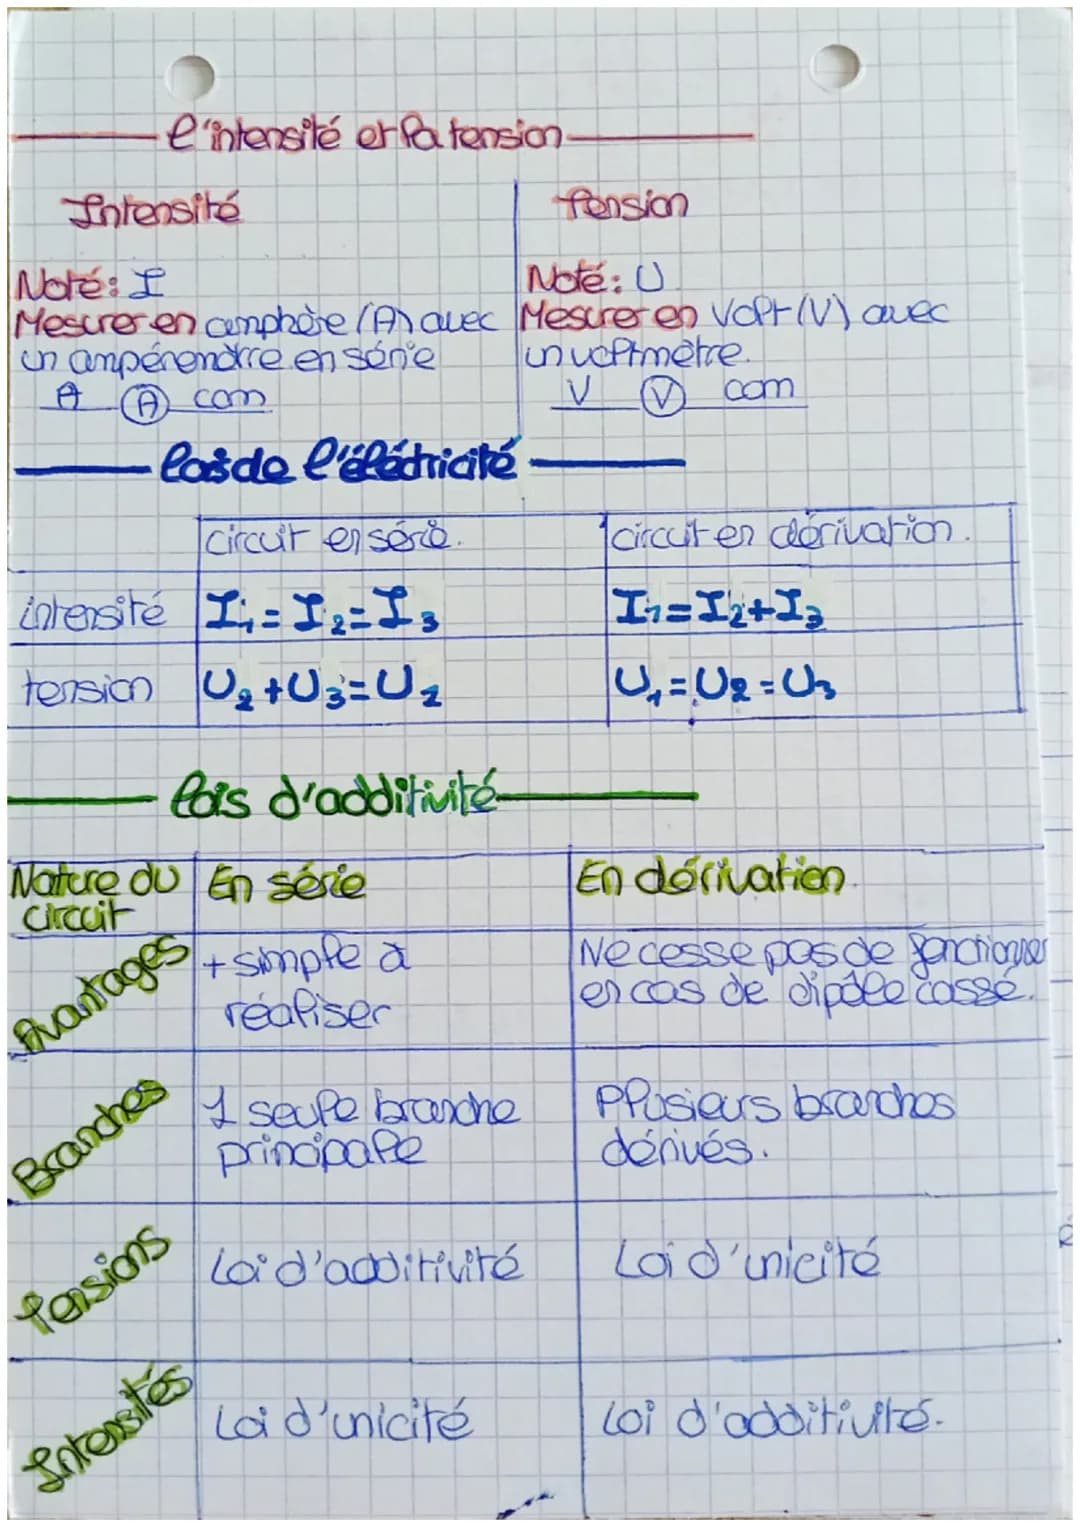 l'intensité et la tension
Intensité
Tension
Noté: I
Noté: U
Mesurer en amphère (A) avec
Mesurer en Volt (V) avec
un ampéremdrre en série
un voltmètre.
A A com
V V com
lois de l'éléctricité
circuit en série.
circuit en dérivation.
intensité I1 = I2 = I3
I1 = I2 + I3
tension U2 + U3 = U1
U1 = U2 = U3
lois d'additivité
Nature du
circuit
En série
En dérivation
Avantages
+ simple à
réaliser
Ne cesse pas de fonctionner
en cas de dipôle cassé.
Branches
1 seule branche
principale
Plusieurs branches
dérivés.
Tensions
Loi d'additivité
Loi d'unicité
Intensités
Loi d'unicité
Loi d'additivité.